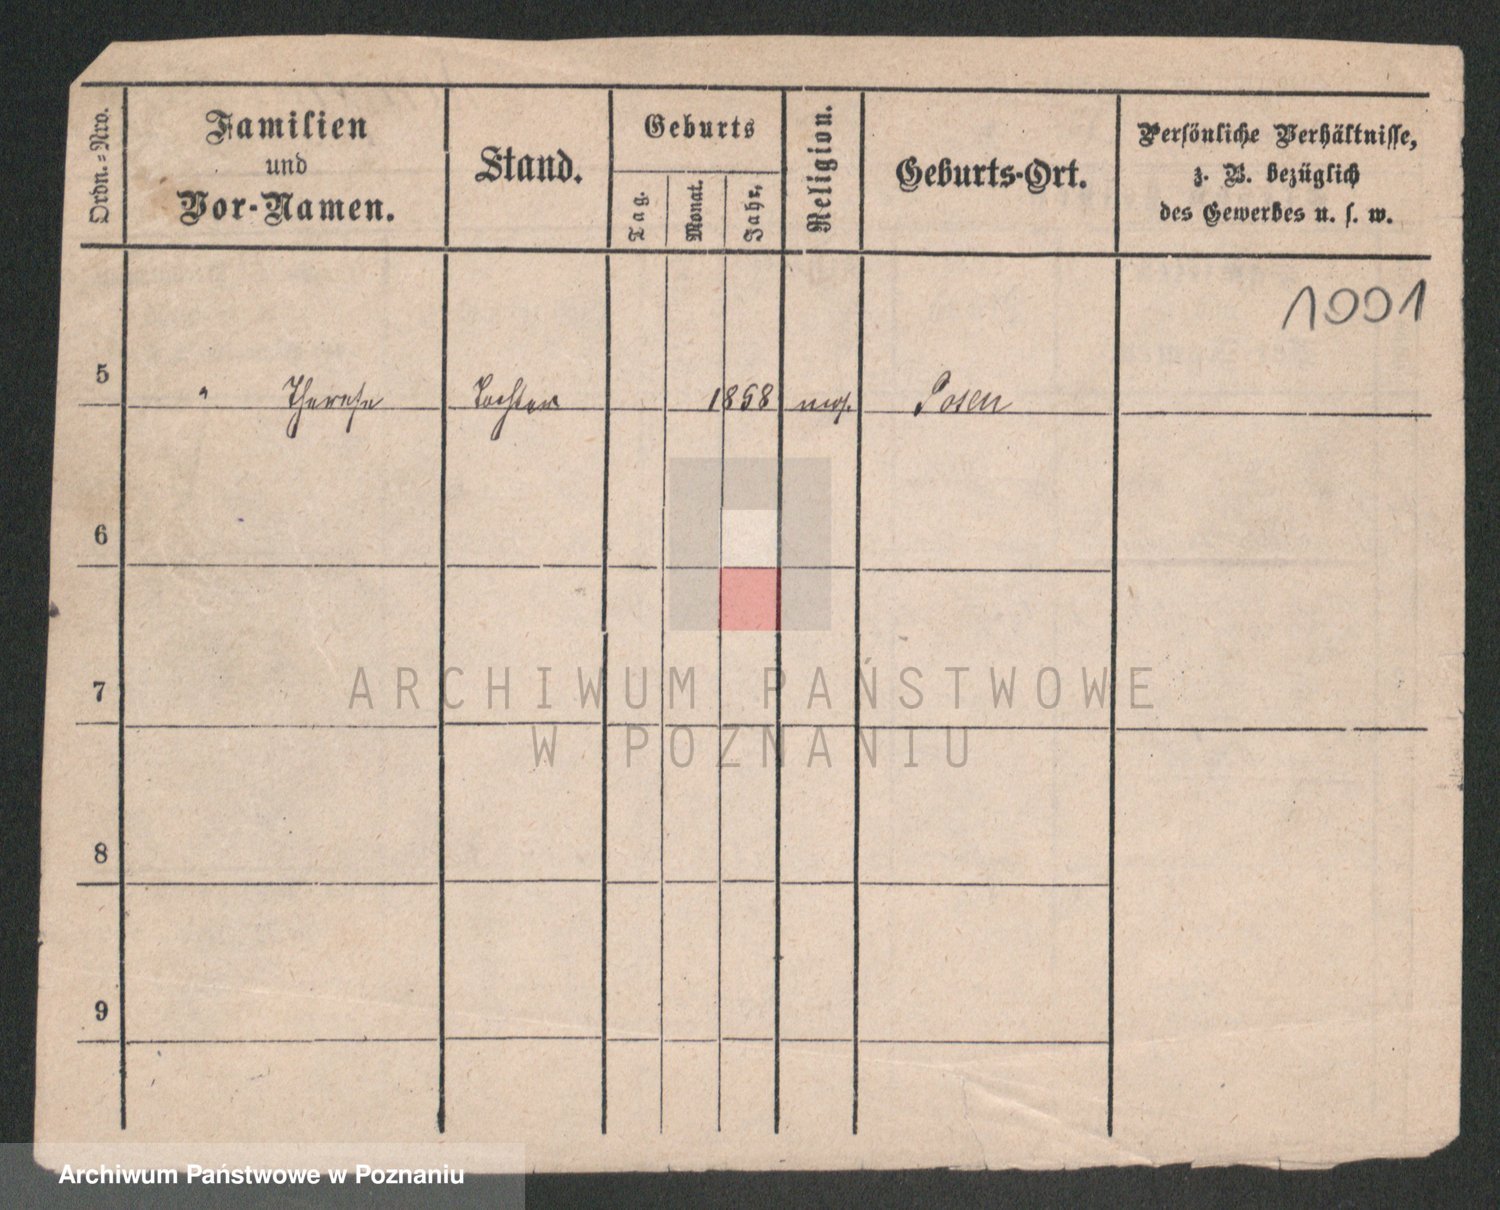 Ordn.=Nro.
Familien
und
Vor-Namen.
Stand.
Geburts
Tag.
Monat.
Jahr.
Religion.
Geburts-Ort.
Persönliche Verhältnisse,
z. B. bezüglich
des Gewerbes u. s. w.
1001
5 " Therese Tochter 1858 mos. Posen
6
7
8
9
ARCHIWUM PAŃSTWOWE
W POZNANIU
Archiwum Państwowe w Poznaniu